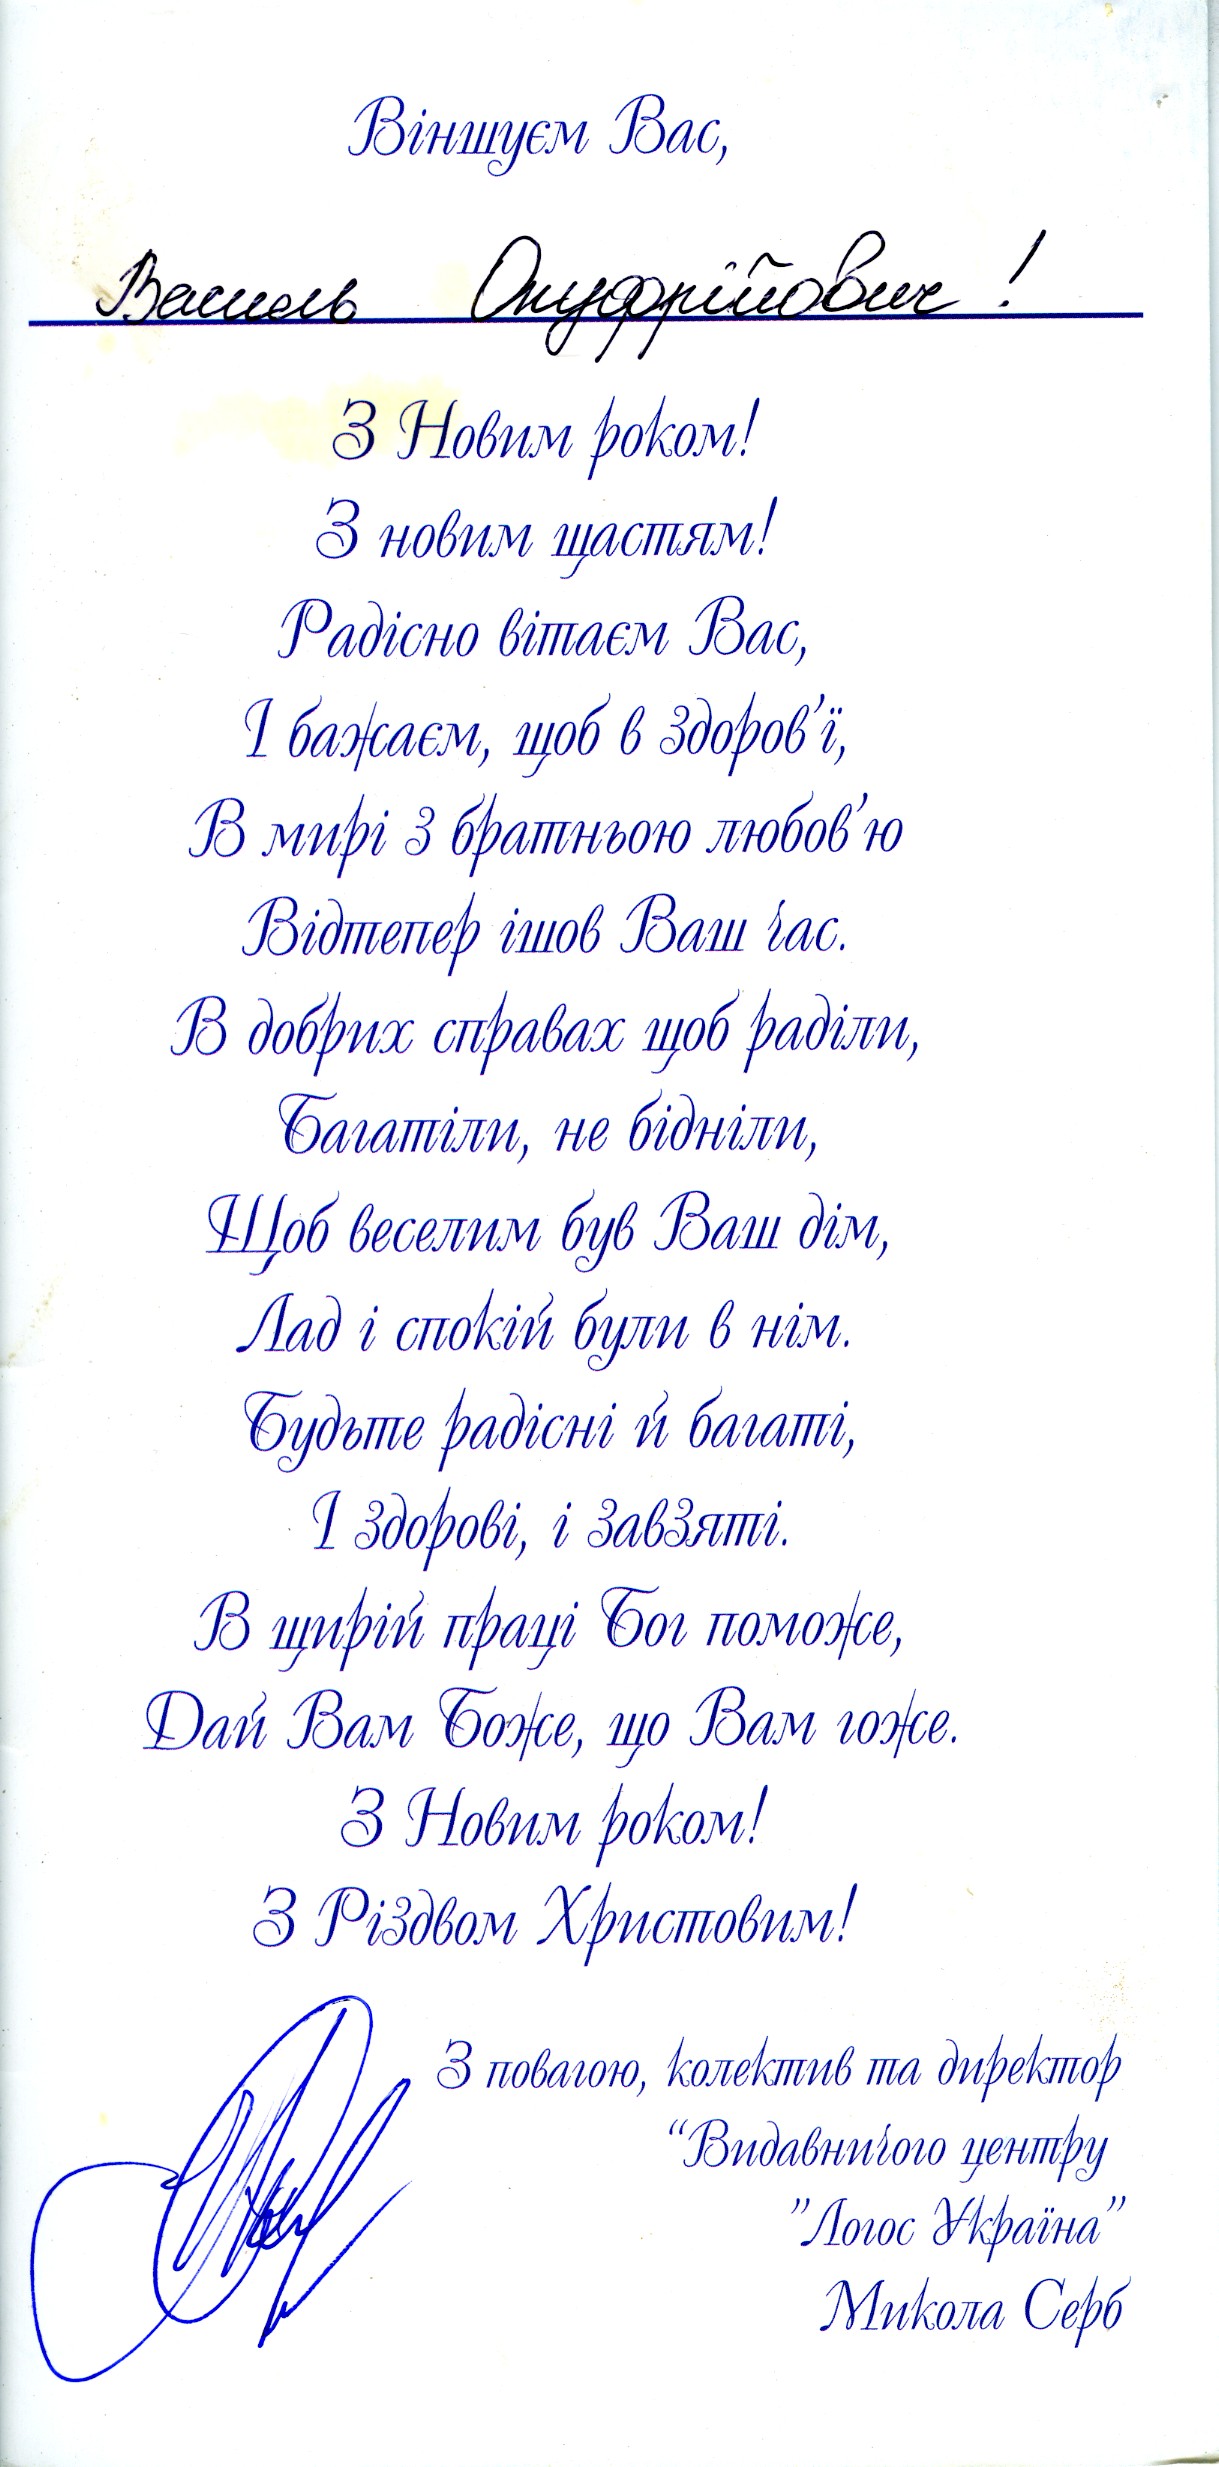 Віншуєм Вас,
Василь Онуфрійович!
З Новим роком!
З новим щастям!
Радісно вітаєм Вас,
І бажаєм, щоб в здоров’ї,
В мирі з братньою любов’ю
Відтепер ішов Ваш час.
В добрих справах щоб раділи,
Багатіли, не бідніли,
Щоб веселим був Ваш дім,
Лад і спокій були в нім.
Будьте радісні й багаті,
І здорові, і завзяті.
В щирій праці Бог поможе,
Дай Вам Боже, що Вам гоже.
З Новим роком!
З Різдвом Христовим!
З повагою, колектив та директор
“Видавничого центру
”Логос Україна”
Микола Серб